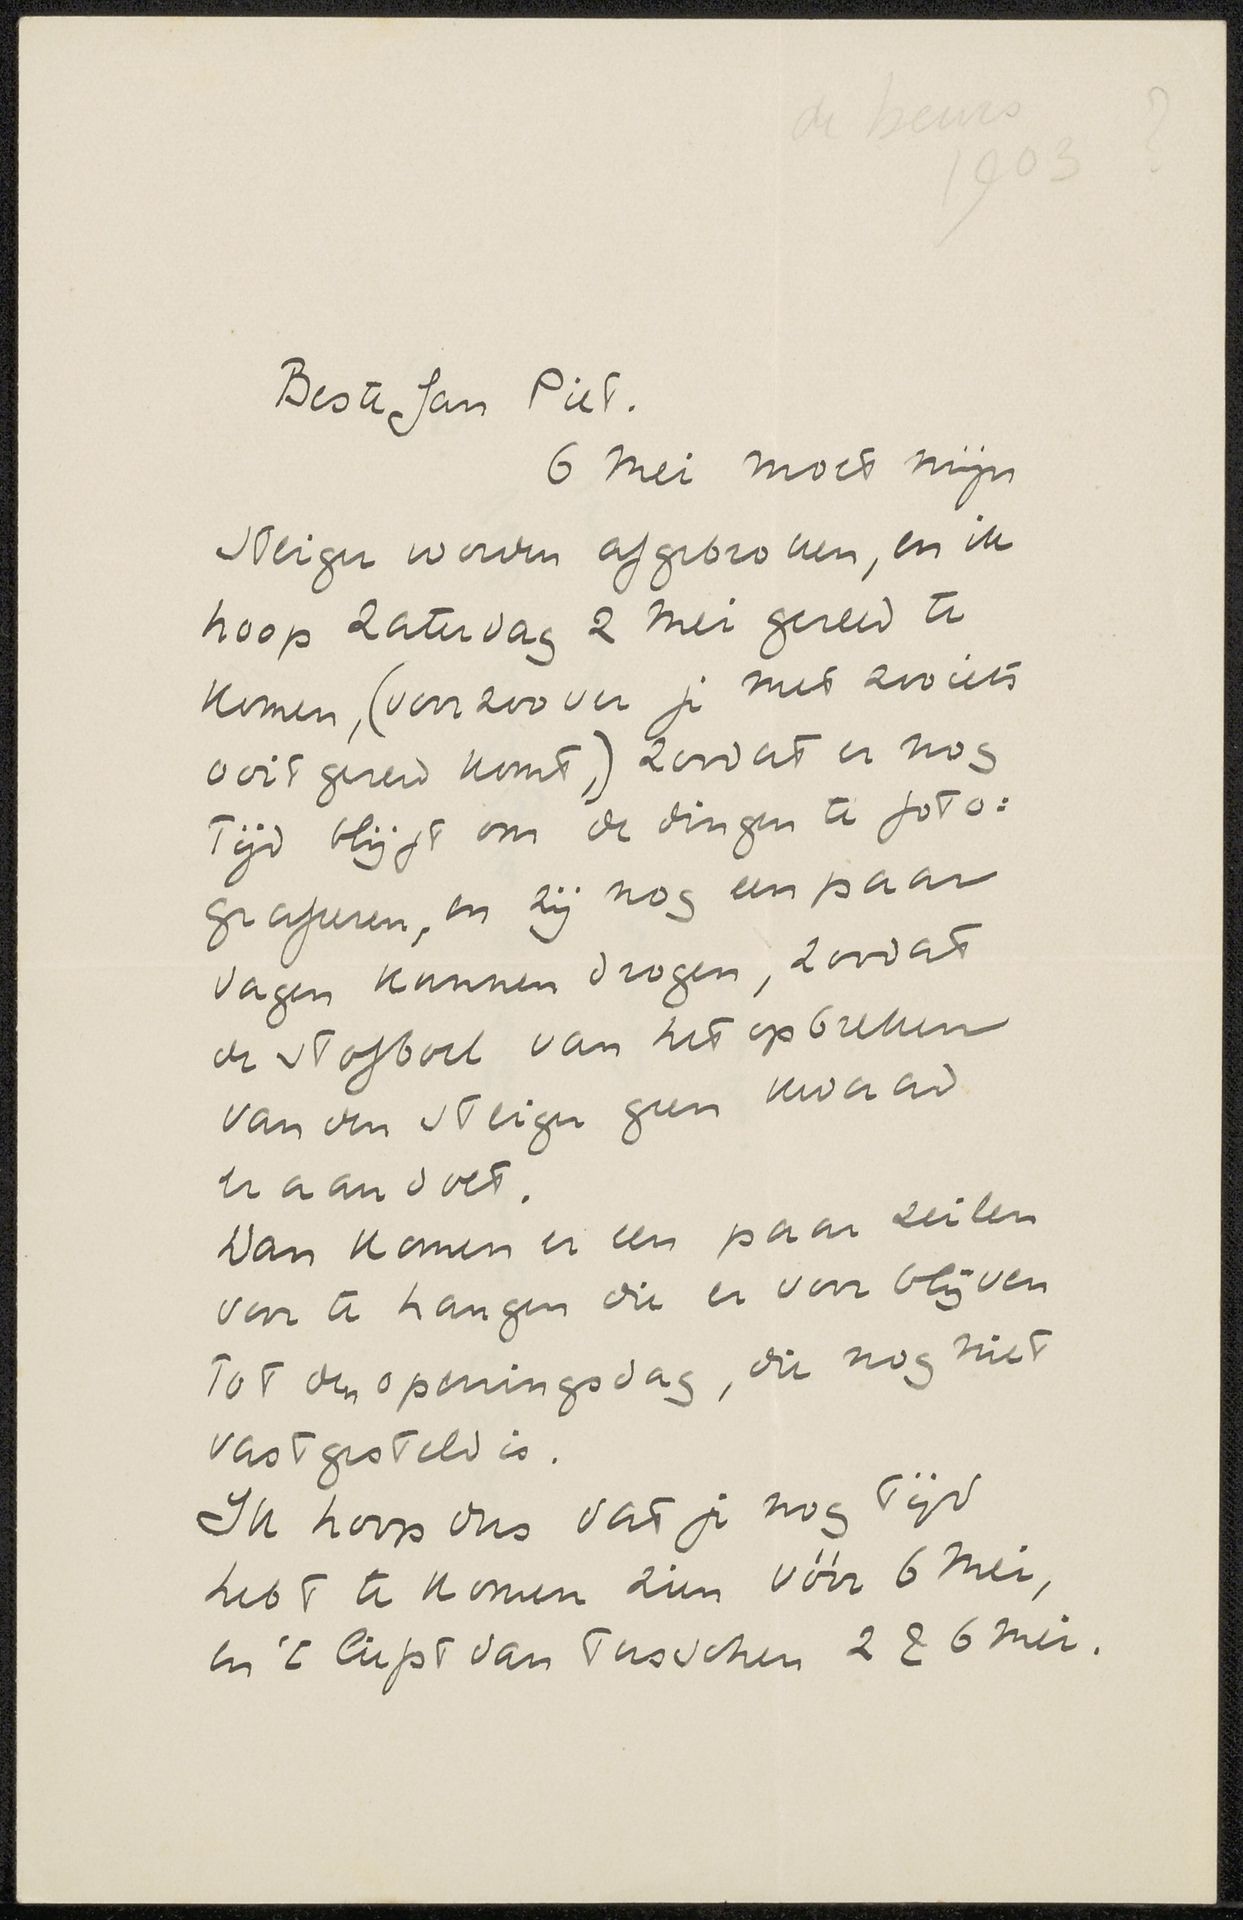 de beurs ?
1903
Beste Jan Piet.
6 Mei moet mijn
steiger worden afgebroken, en ik
hoop Zaterdag 2 Mei gereed te
komen, (voorzoover je met zooiets
ooit gereed komt,) zoodat er nog
tijd blijft om de dingen te foto:
graferen, en zij nog een paar
dagen kunnen drogen, zoodat
de stofboel van het opbreken
van den steiger geen kwaad
er aan doet.
Dan komen er een paar zeilen
voor te hangen die er voor blijven
tot den openingsdag, die nog niet
vastgesteld is.
Ik hoop dus dat je nog tijd
hebt te komen zien vóór 6 Mei,
en 't liefst dan tusschen 2 & 6 Mei.